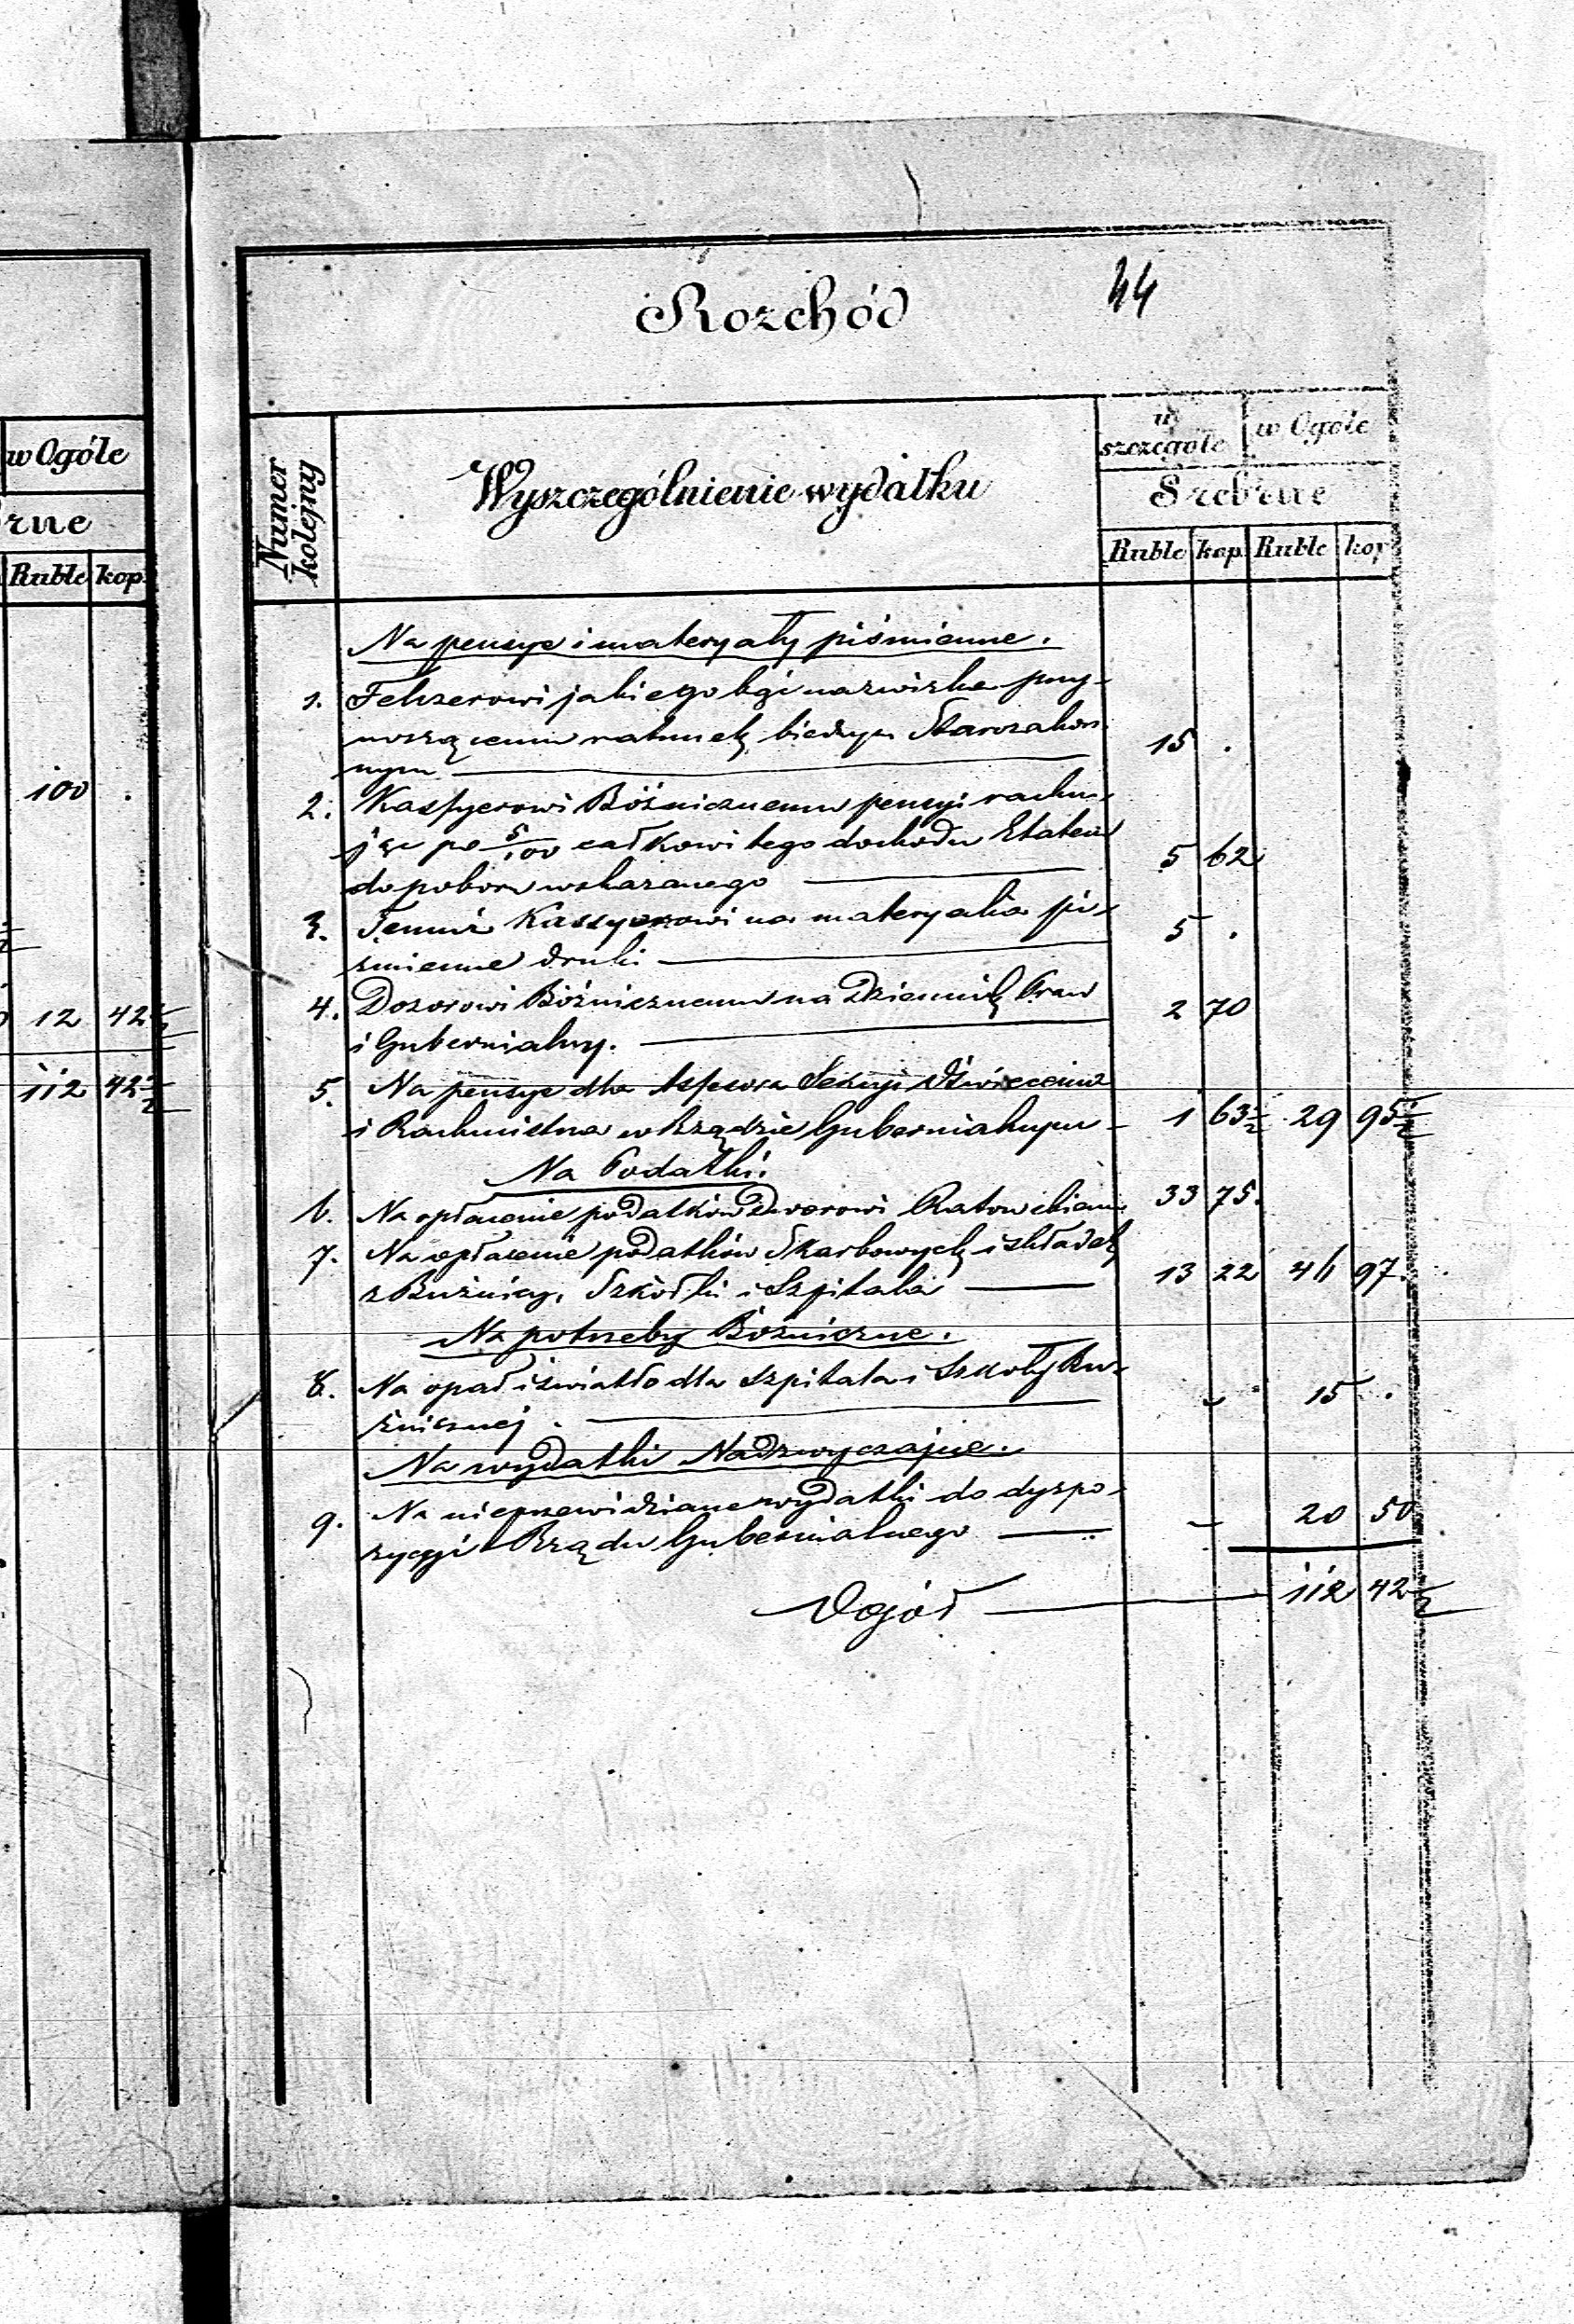 Rozchód
44
w Ogóle
rne
Ruble kop.
100 .
12 42½
112 42½
Numer kolejny
Wyszczególnienie wydatku
w szczególe
w Ogóle
Srebrne
Ruble kop. Ruble kop
Na pensye i materyały piśmienne.
1. Felczerowi jakiego bądź nazwiska przy-
noszącemu ratunek biednym Starozakon-
nym 15 .
2. Kassyerowi Bóżnicznemu pensyi rachu-
jąc po 5/100 całkowitego dochodu Etatem
do poboru wskazanego 5 62
3. Temuż Kassyerowi na materyalia pi-
śmienne druki 5 .
4. Dozorowi Bóżnicznemu na Dziennik Praw
i Gubernialny. 2 70
5. Na pensye dla Assessora Sekcyi
i Rachmistrza w Rządzie Gubernialnym 1 63½ 29 95½
Na Podatki.
6. Na opłacenie podatków Dworowi 33 75.
7. Na opłacenie podatków Skarbowych i składek
z Bużnicy, Szkółki i Szpitala 13 22 46 97.
Na potrzeby Bóżniczne.
8. Na opał i światło dla Szpitala i Szkoły Bu-
żnicznej . - 15 .
Na wydatki Nadzwyczajne.
9. Na nieprzewidziane wydatki do dyspo-
zycyi Rządu Gubernialnego - 20 50
Ogół 112 42½